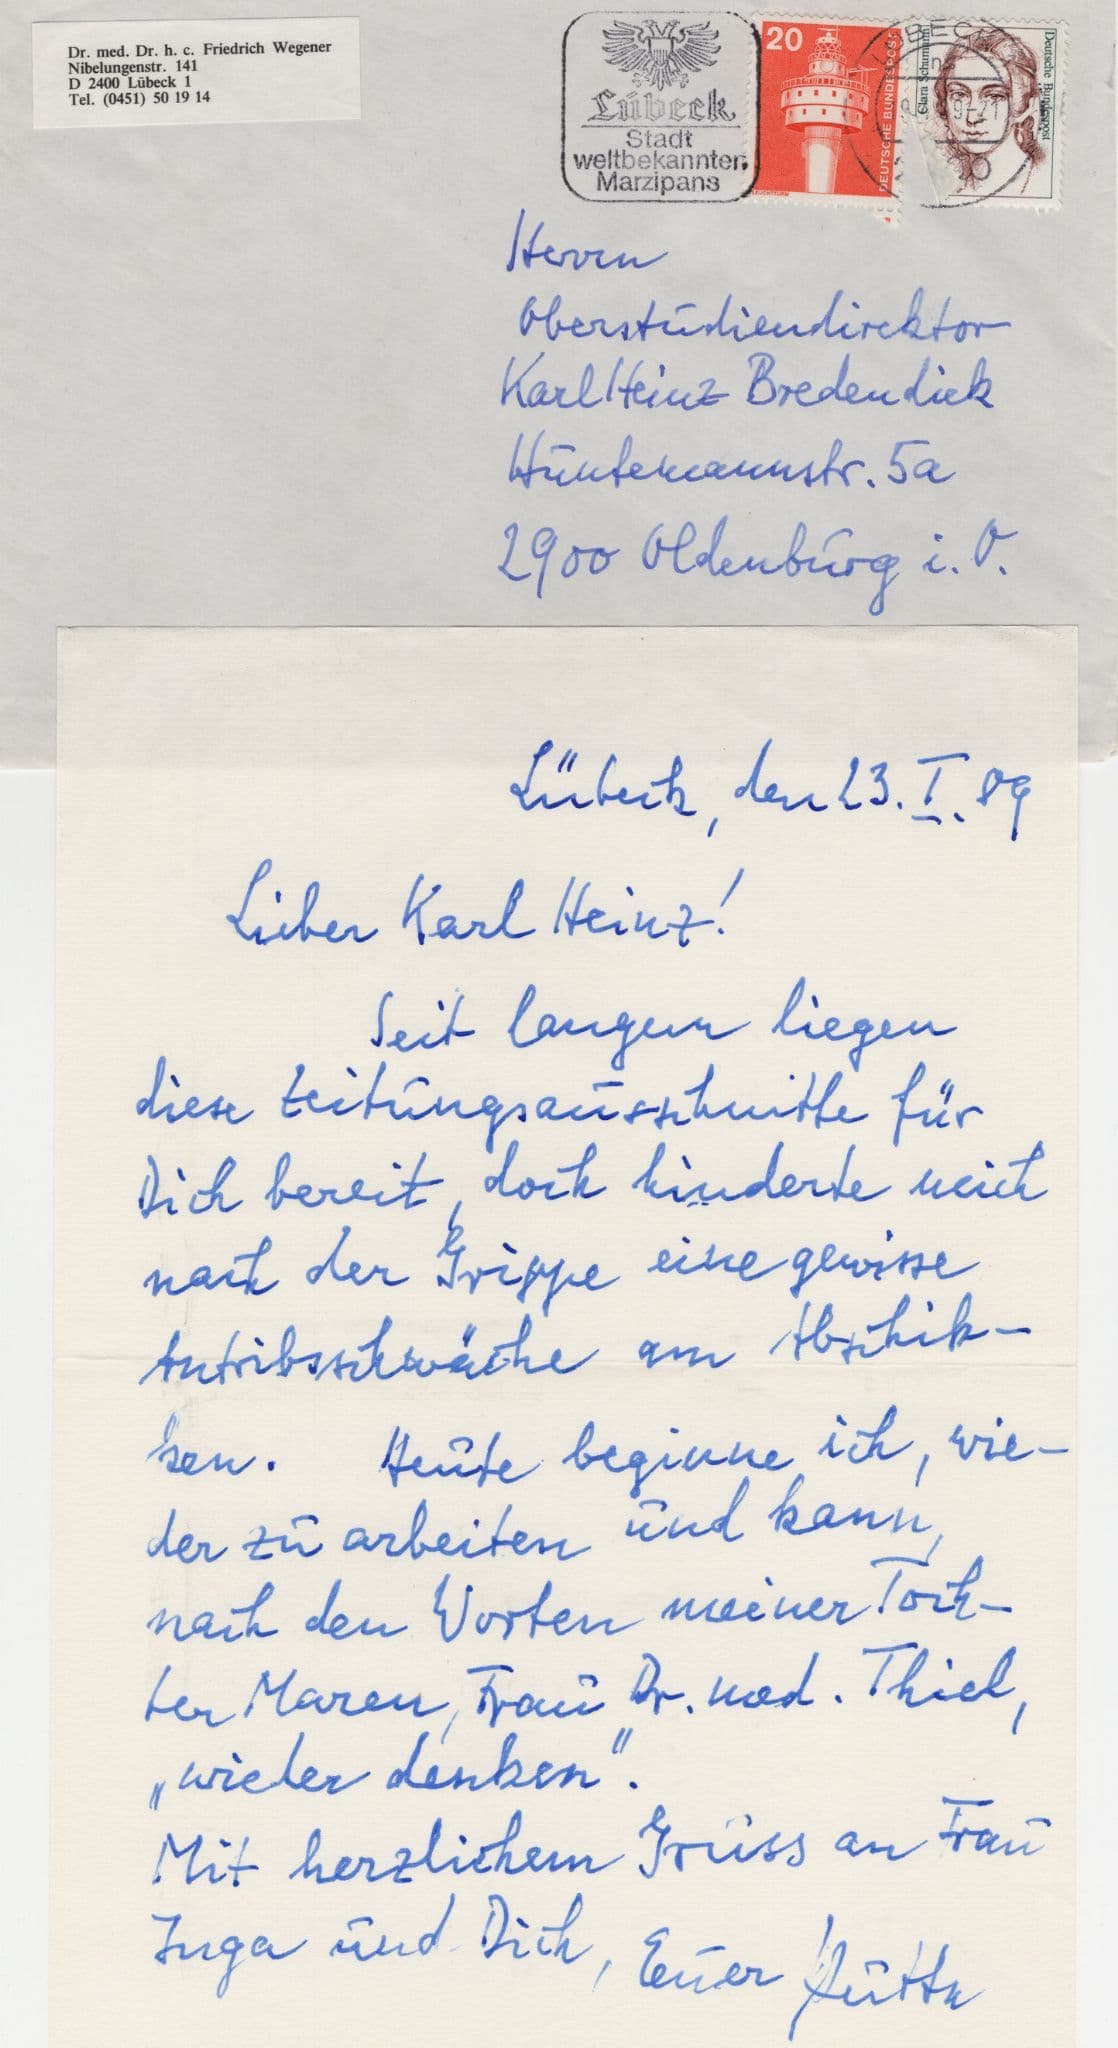 Dr. med. Dr. h. c. Friedrich Wegener
Nibelungenstr. 141
D 2400 Lübeck 1
Tel. (0451) 50 19 14
Lübeck
Stadt
weltbekannten
Marzipans
20
DEUTSCHE BUNDESPOST
LÜBECK
9-21
Clara Schumann
Deutsche Bundespost
Herrn
Oberstudiendirektor
Karl Heinz Bredendiek
Hüntemannstr. 5a
2900 Oldenburg i. O.
Lübeck, den 23. I. 89
Lieber Karl Heinz!
Seit langem liegen
diese Zeitungsausschnitte für
Dich bereit, doch hinderte mich
nach der Grippe eine gewisse
Antribsschwäche am Abschik-
ken. Heute beginne ich, wie-
der zu arbeiten und kann,
nach den Worten meiner Toch-
ter Maren, Frau Dr. med. Thiel,
„wieder denken".
Mit herzlichem Gruss an Frau
Inga und Dich, Euer